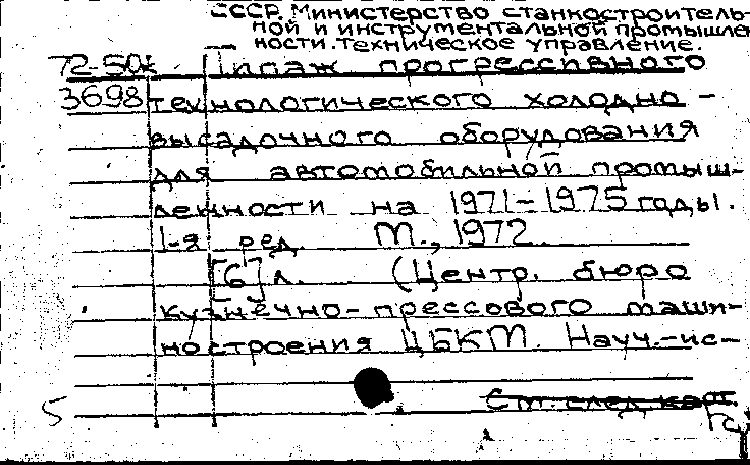 СССР. Министерство станкостроитель-
ной и инструментальной промышлен
ности. Техническое управление.
72-50к Типаж прогрессивного
3698 технологического холодно-
высадочного оборудования
для автомобильной промыш-
ленности на 1971-1975 годы.
1-я ред. М., 1972.
[6] л. (Центр. бюро
кузнечно-прессового маши-
ностроения ЦБКМ. Науч.-ис-
5 См. след. карт.